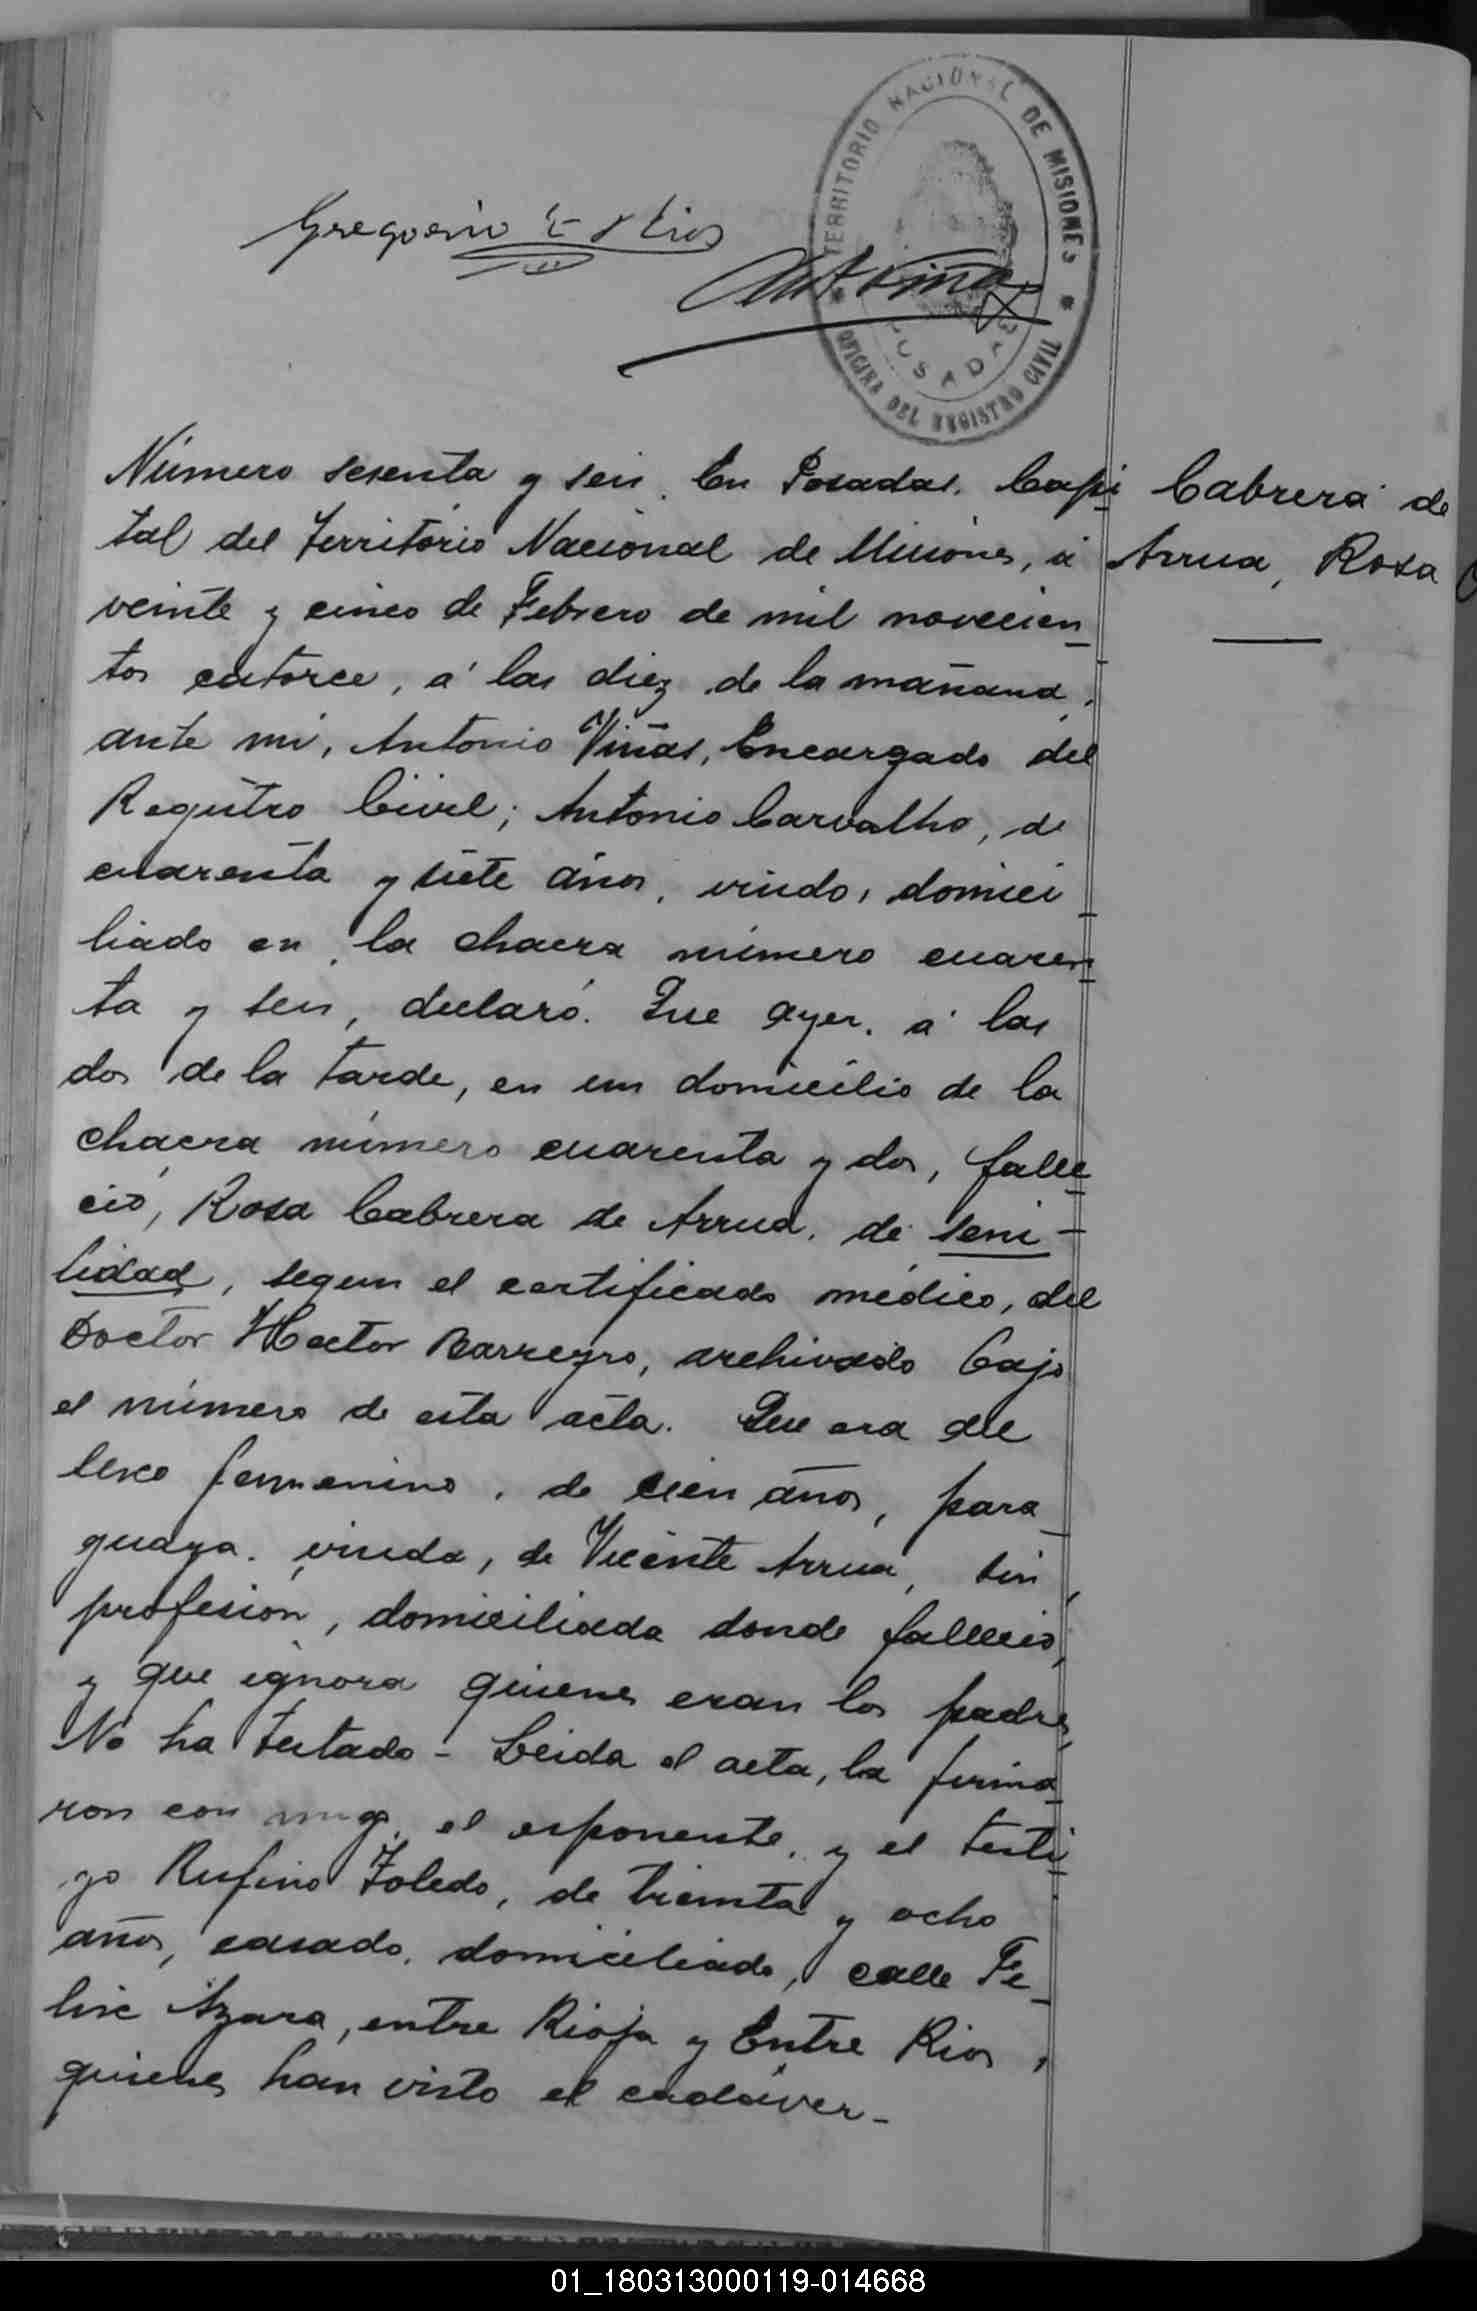 TERRITORIO NACIONAL DE MISIONES
POSADAS
OFICINA DEL REGISTRO CIVIL
Gregorio
Ant Viñas
Número sesenta y seis. En Posadas, Capi
tal del Territorio Nacional de Misiones, á
veinte y cinco de Febrero de mil novecien_
tos catorce, á las diez de la mañana,
ante mi, Antonio Viñas, Encargado del
Registro Civil; Antonio Carvalho, de
cuarenta y siete años, viudo, domici_
liado en la chacra número cuaren_
ta y seis, declaró. Que ayer, á las
dos de la tarde, en un domicilio de la
chacra número cuarenta y dos, falle_
ció, Rosa Cabrera de Arrua, de seni-
lidad, segun el certificado médico, del
Doctor Hector Barreyro, archivado bajo
el número de esta acta. Que era del
sexo femenino, de cien años, para_
guaya, viuda, de Vicente Arrua, sin
profesion, domiciliada donde falleció,
y que ignora quienes eran los padres,
No ha testado - Leida el acta, la firma_
ron con migo, el esponente, y el testi_
go Rufino Toledo, de treinta y ocho
años, casado, domiciliado, calle Fe_
lix Azara, entre Rioja y Entre Rios,
quienes han visto el cadáver-
Cabrera de
Arrua, Rosa
01_180313000119-014668